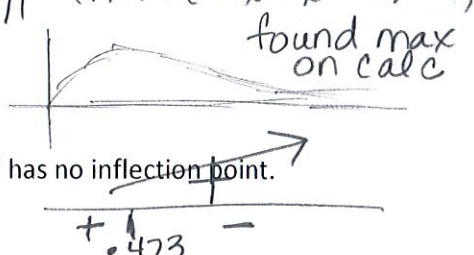 found max
on calc
has no inflection point.
+ -
.473